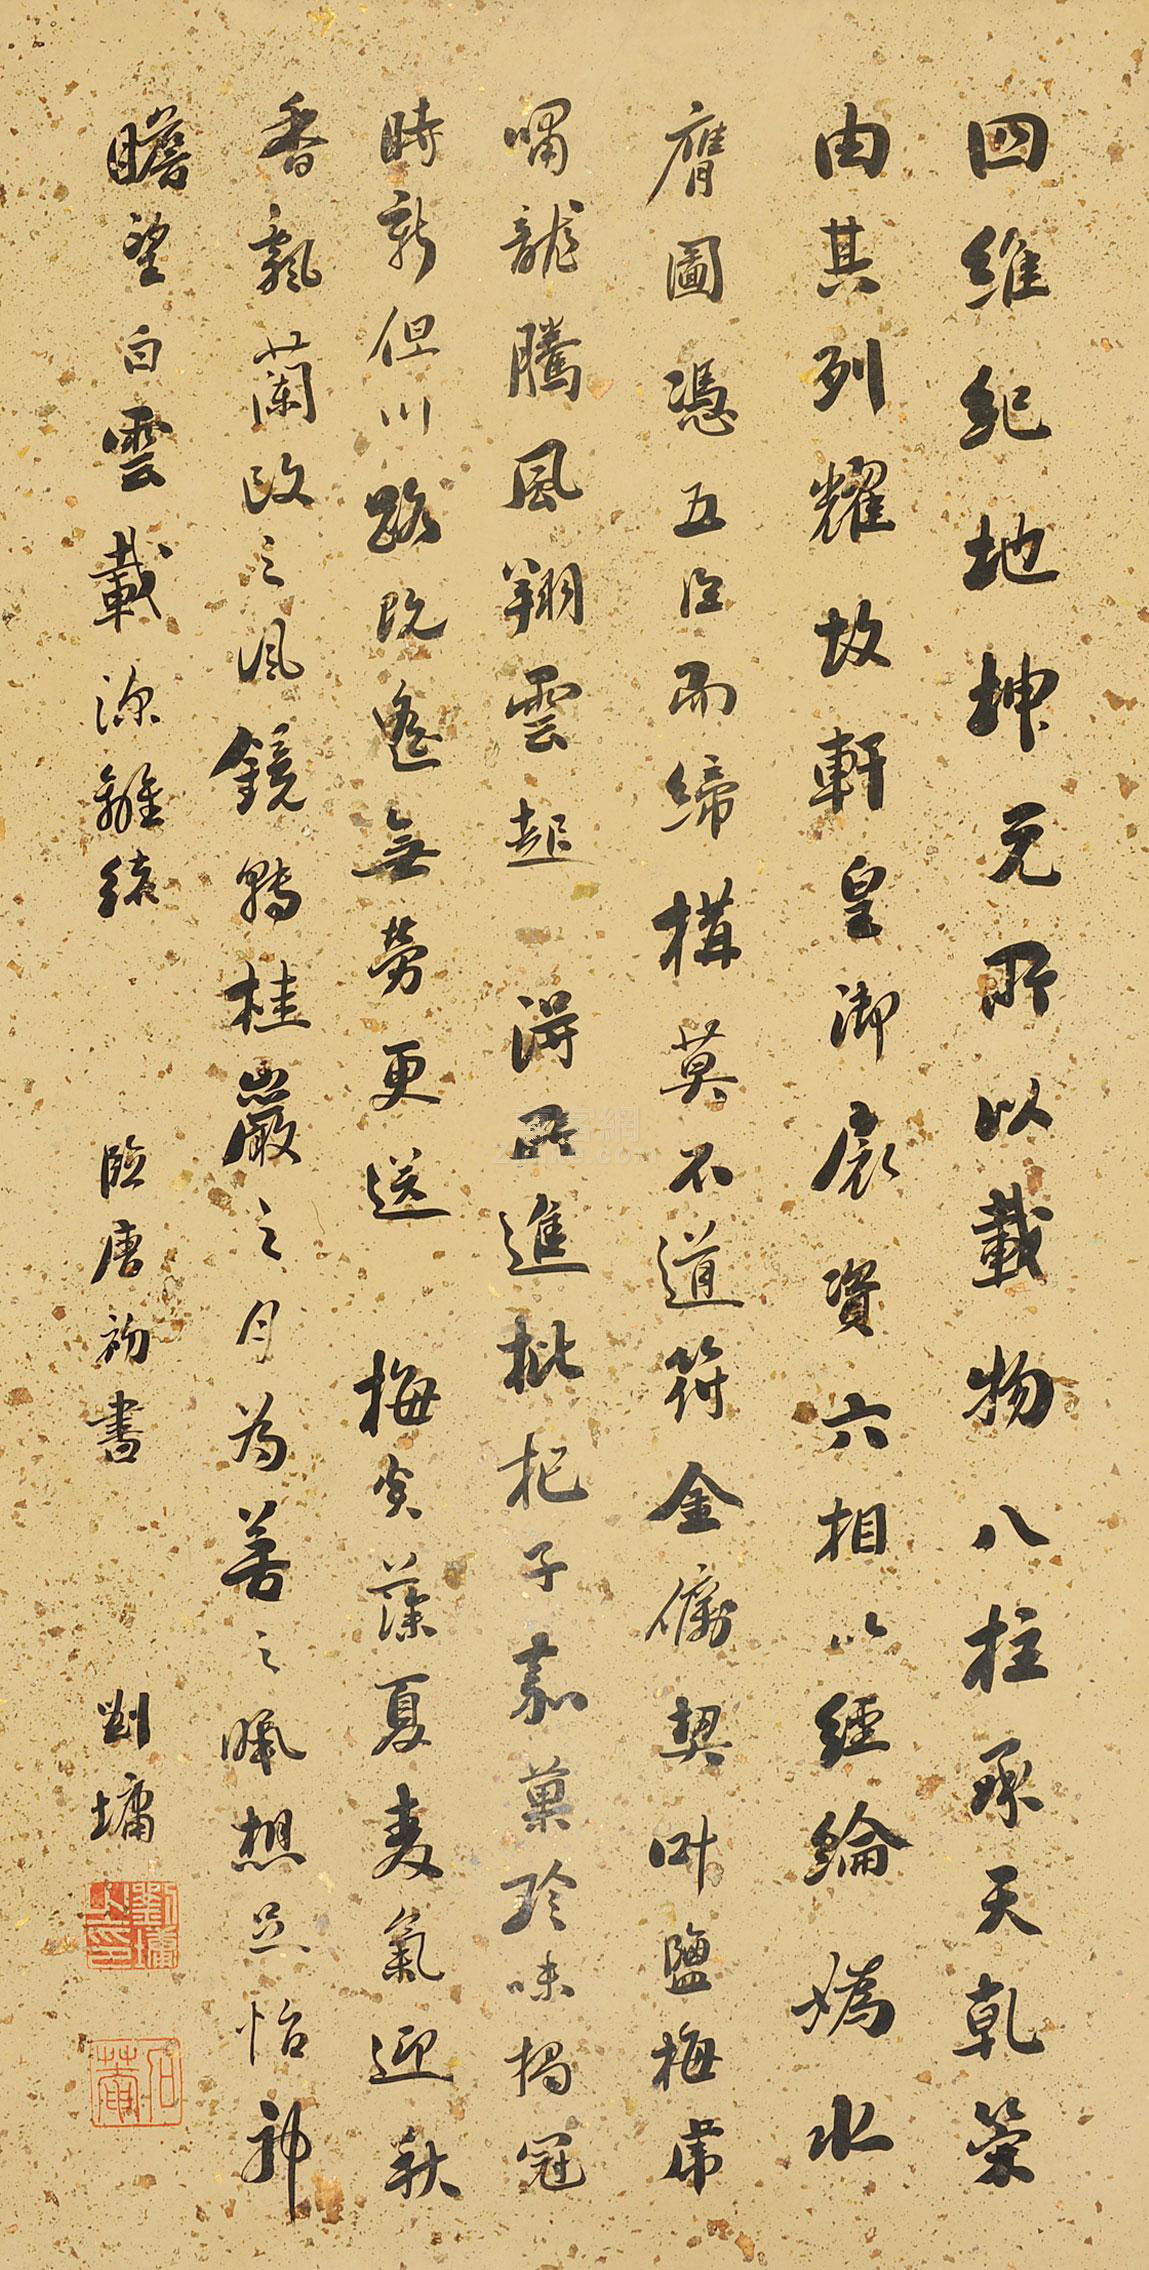 四維紀地坤元所以載物八柱承天乾策
由其列耀故軒皇御扆資六相以經綸媯水
膺圖憑五臣而締構莫不道符金礪契叶鹽梅虎
嘯龍騰風翔雲起 得所進枇杷子嘉菓珍味獨冠
時新但川路既遙無勞更送 梅炎藻夏麦氣迎秋
香飄蘭政之風鏡轉桂巖之月為善之暇想足怡神
瞻望白雲載深離緒 臨唐初書 劉墉
劉墉之印
石菴